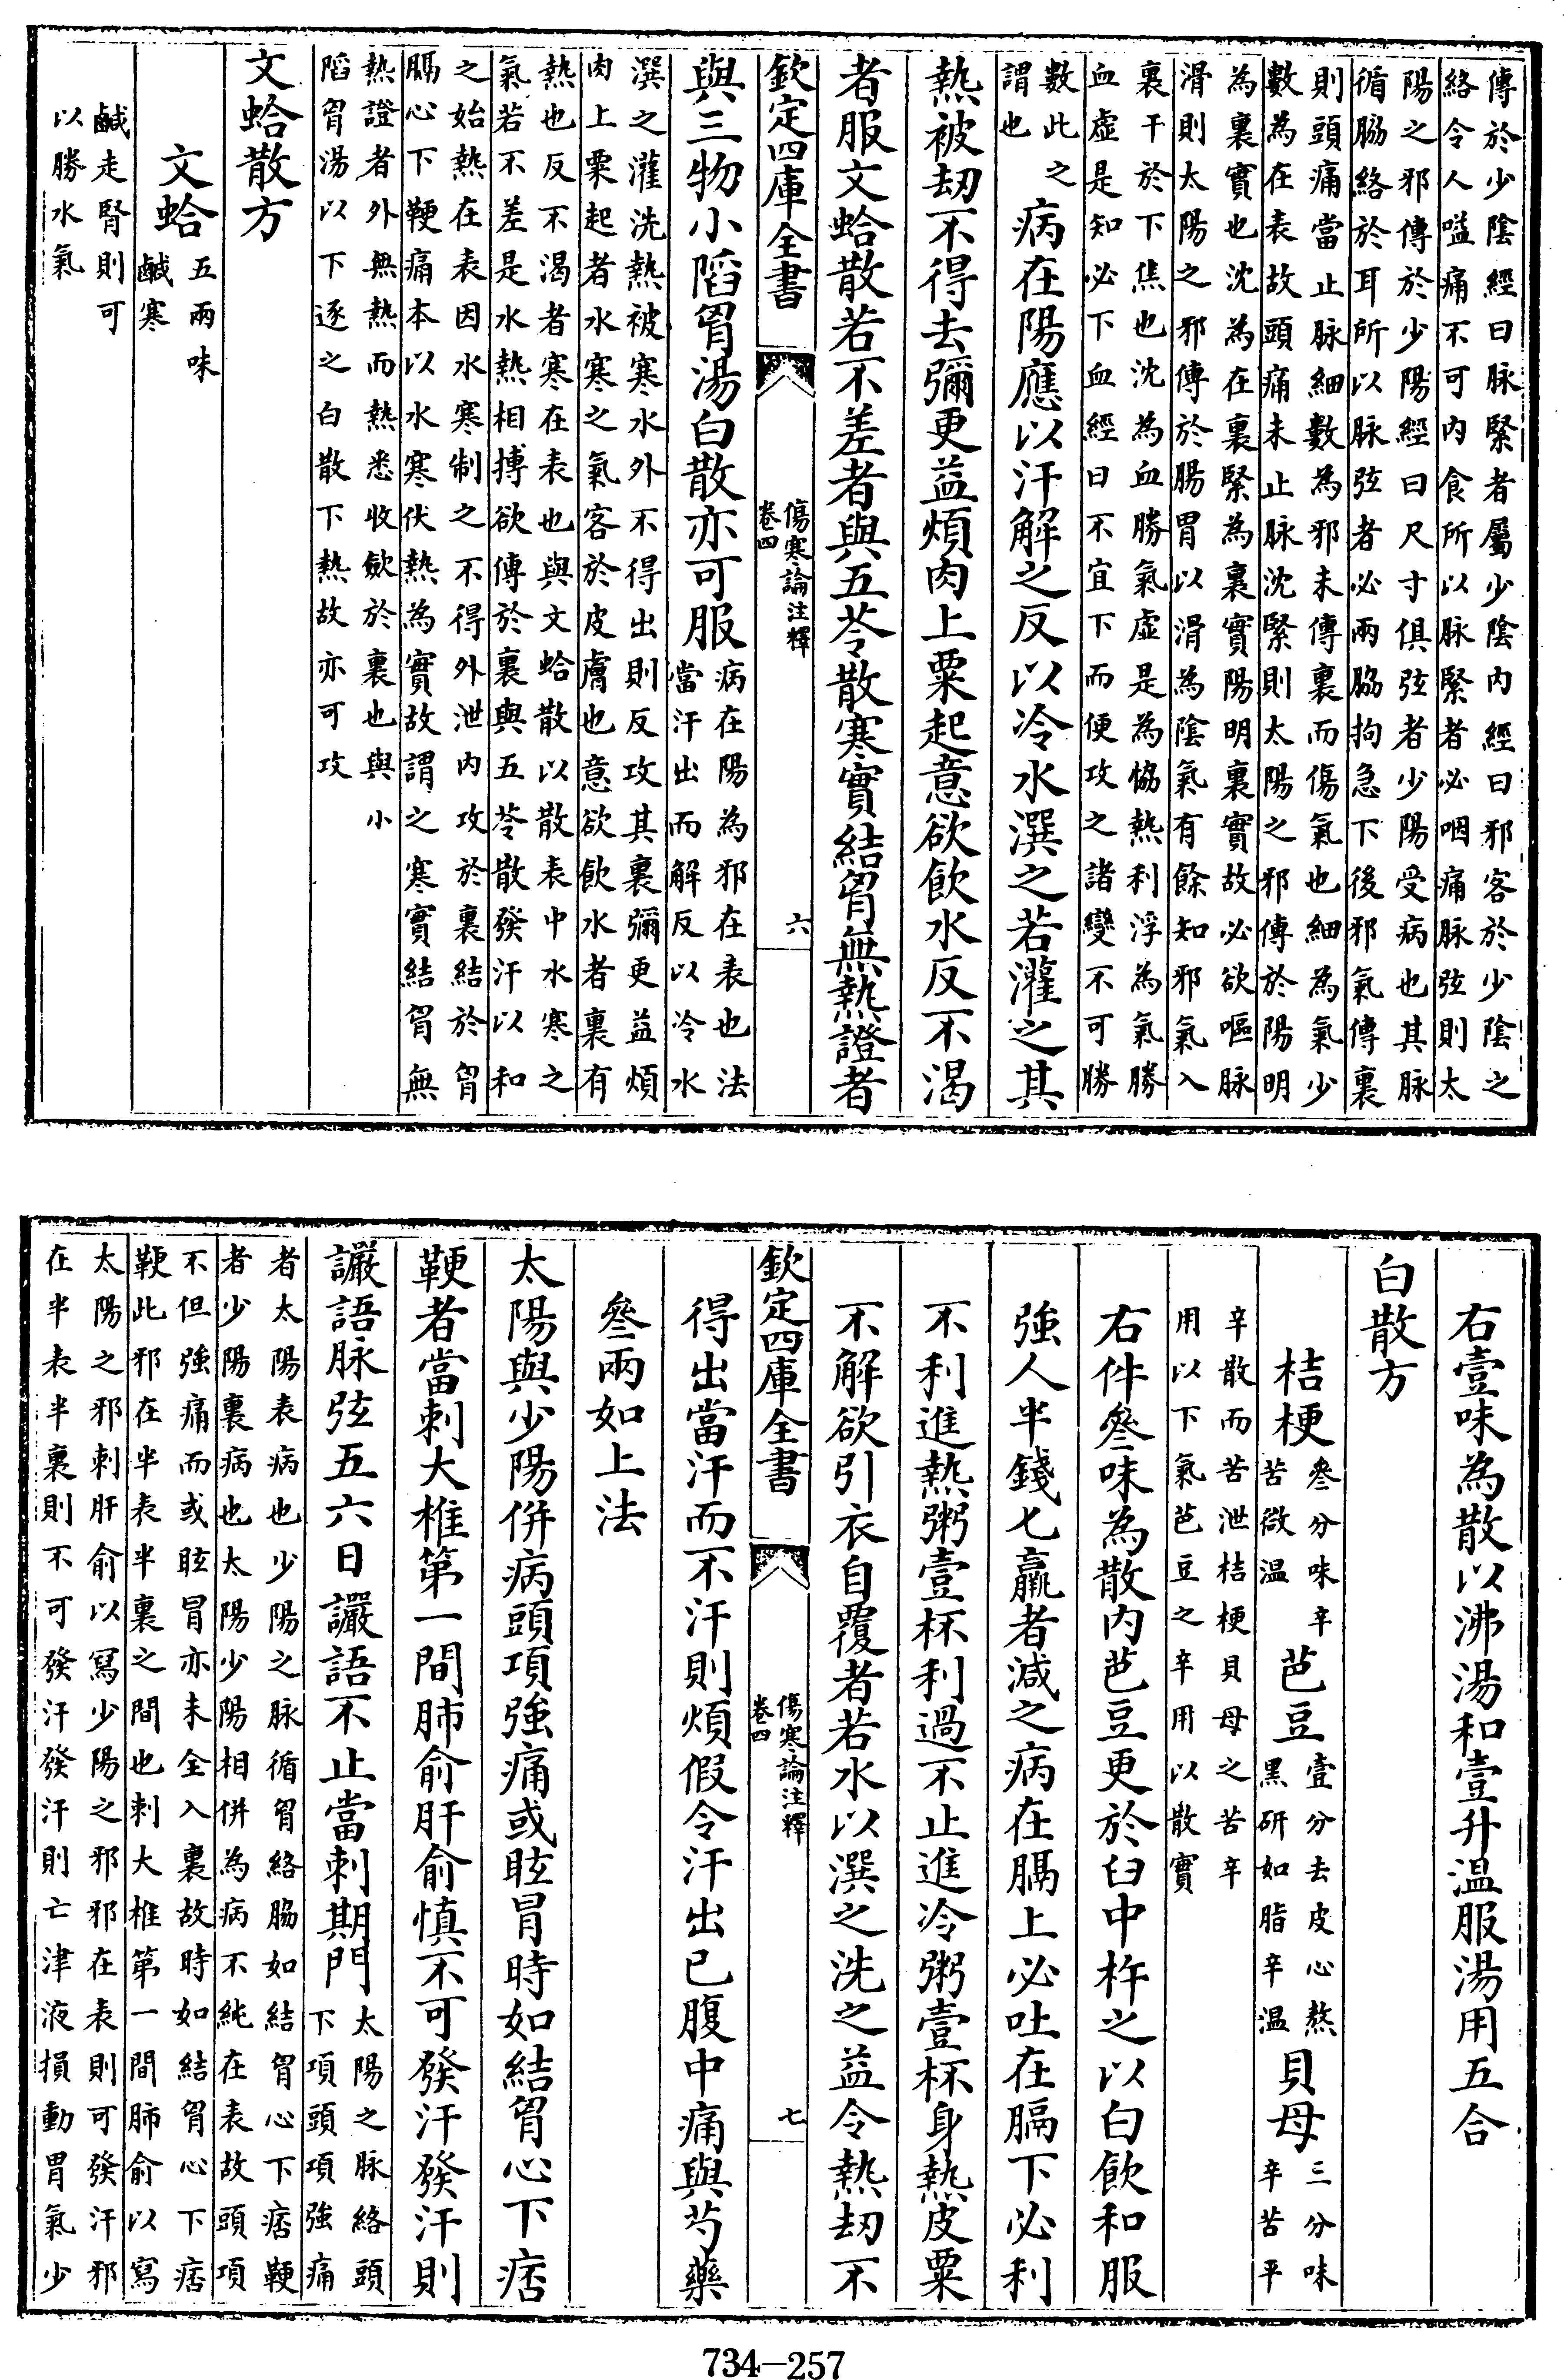 傳於少陰經曰脉緊者屬少陰内經曰邪客於少陰之
絡令人嗌痛不可内食所以脉緊者必咽痛脉弦則太
陽之邪傳於少陽經曰尺寸俱弦者少陽受病也其脉
循脇絡於耳所以脉弦者必兩脇拘急下後邪氣傳裏
則頭痛當止脉細數為邪未傳裏而傷氣也細為氣少
數為在表故頭痛未止脉沈緊則太陽之邪傳於陽明
為裏實也沈為在裏緊為裏實陽明裏實故必欲嘔脉
滑則太陽之邪傳於腸胃以滑為陰氣有餘知邪氣入
裏干於下焦也沈為血勝氣虚是為恊熱利浮為氣勝
血虚是知必下血經曰不宜下而便攻之諸變不可勝
數此之
謂也
病在陽應以汗解之反以冷水潠之若灌之其
熱被刼不得去彌更益煩肉上粟起意欲飲水反不渇
者服文蛤散若不差者與五苓散寒實結胷無熱證者
欽定四庫全書
傷寒論注釋
卷四
六
與三物小陷胷湯白散亦可服
病在陽為邪在表也法
當汗出而解反以冷水
潠之灌洗熱被寒水外不得出則反攻其裏彌更益煩
肉上粟起者水寒之氣客於皮膚也意欲飲水者裏有
熱也反不渴者寒在表也與文蛤散以散表中水寒之
氣若不差是水熱相搏欲傳於裏與五苓散發汗以和
之始熱在表因水寒制之不得外泄内攻於裏結於胷
膈心下鞕痛本以水寒伏熱為實故謂之寒實結胷無
熱證者外無熱而熱悉收斂於裏也與小
陷胷湯以下逐之白散下熱故亦可攻
文蛤散方
文蛤
五兩味
鹹寒
鹹走腎則可
以勝水氣
右壹味為散以沸湯和壹升温服湯用五合
白散方
桔梗
叄分味辛
苦微温
芭豆
壹分去皮心熬
黑研如脂辛温
貝母
三分味
辛苦平
辛散而苦泄桔梗貝母之苦辛
用以下氣芭豆之辛用以散實
右件叄味為散内芭豆更於臼中杵之以白飲和服
強人半錢匕羸者減之病在膈上必吐在膈下必利
不利進熱粥壹杯利過不止進冷粥壹杯身熱皮粟
不解欲引衣自覆者若水以潠之洗之益令熱刼不
欽定四庫全書
傷寒論注釋
卷四
七
得出當汗而不汗則煩假令汗出已腹中痛與芍藥
叄兩如上法
太陽與少陽併病頭項強痛或眩冒時如結胷心下痞
鞕者當刺大椎第一間肺俞肝俞慎不可發汗發汗則
讝語脉弦五六日讝語不止當刺期門
太陽之脉絡頭
下項頭項強痛
者太陽表病也少陽之脉循胷絡脇如結胷心下痞鞕
者少陽裏病也太陽少陽相併為病不純在表故頭項
不但強痛而或眩冒亦未全入裏故時如結胷心下痞
鞕此邪在半表半裏之間也刺大椎第一間肺俞以寫
太陽之邪刺肝俞以寫少陽之邪邪在表則可發汗邪
在半表半裏則不可發汗發汗則亡津液損動胃氣少
734-257